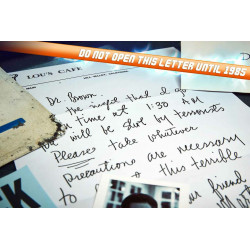 DO NOT OPEN THIS LETTER UNTIL 1985
LOU'S CAFE
Dr. Brown,
the night that I go
time at 1:30 AM
will be shot by terrorists
Please take whatever
precautions are necessary
to this terrible
friend